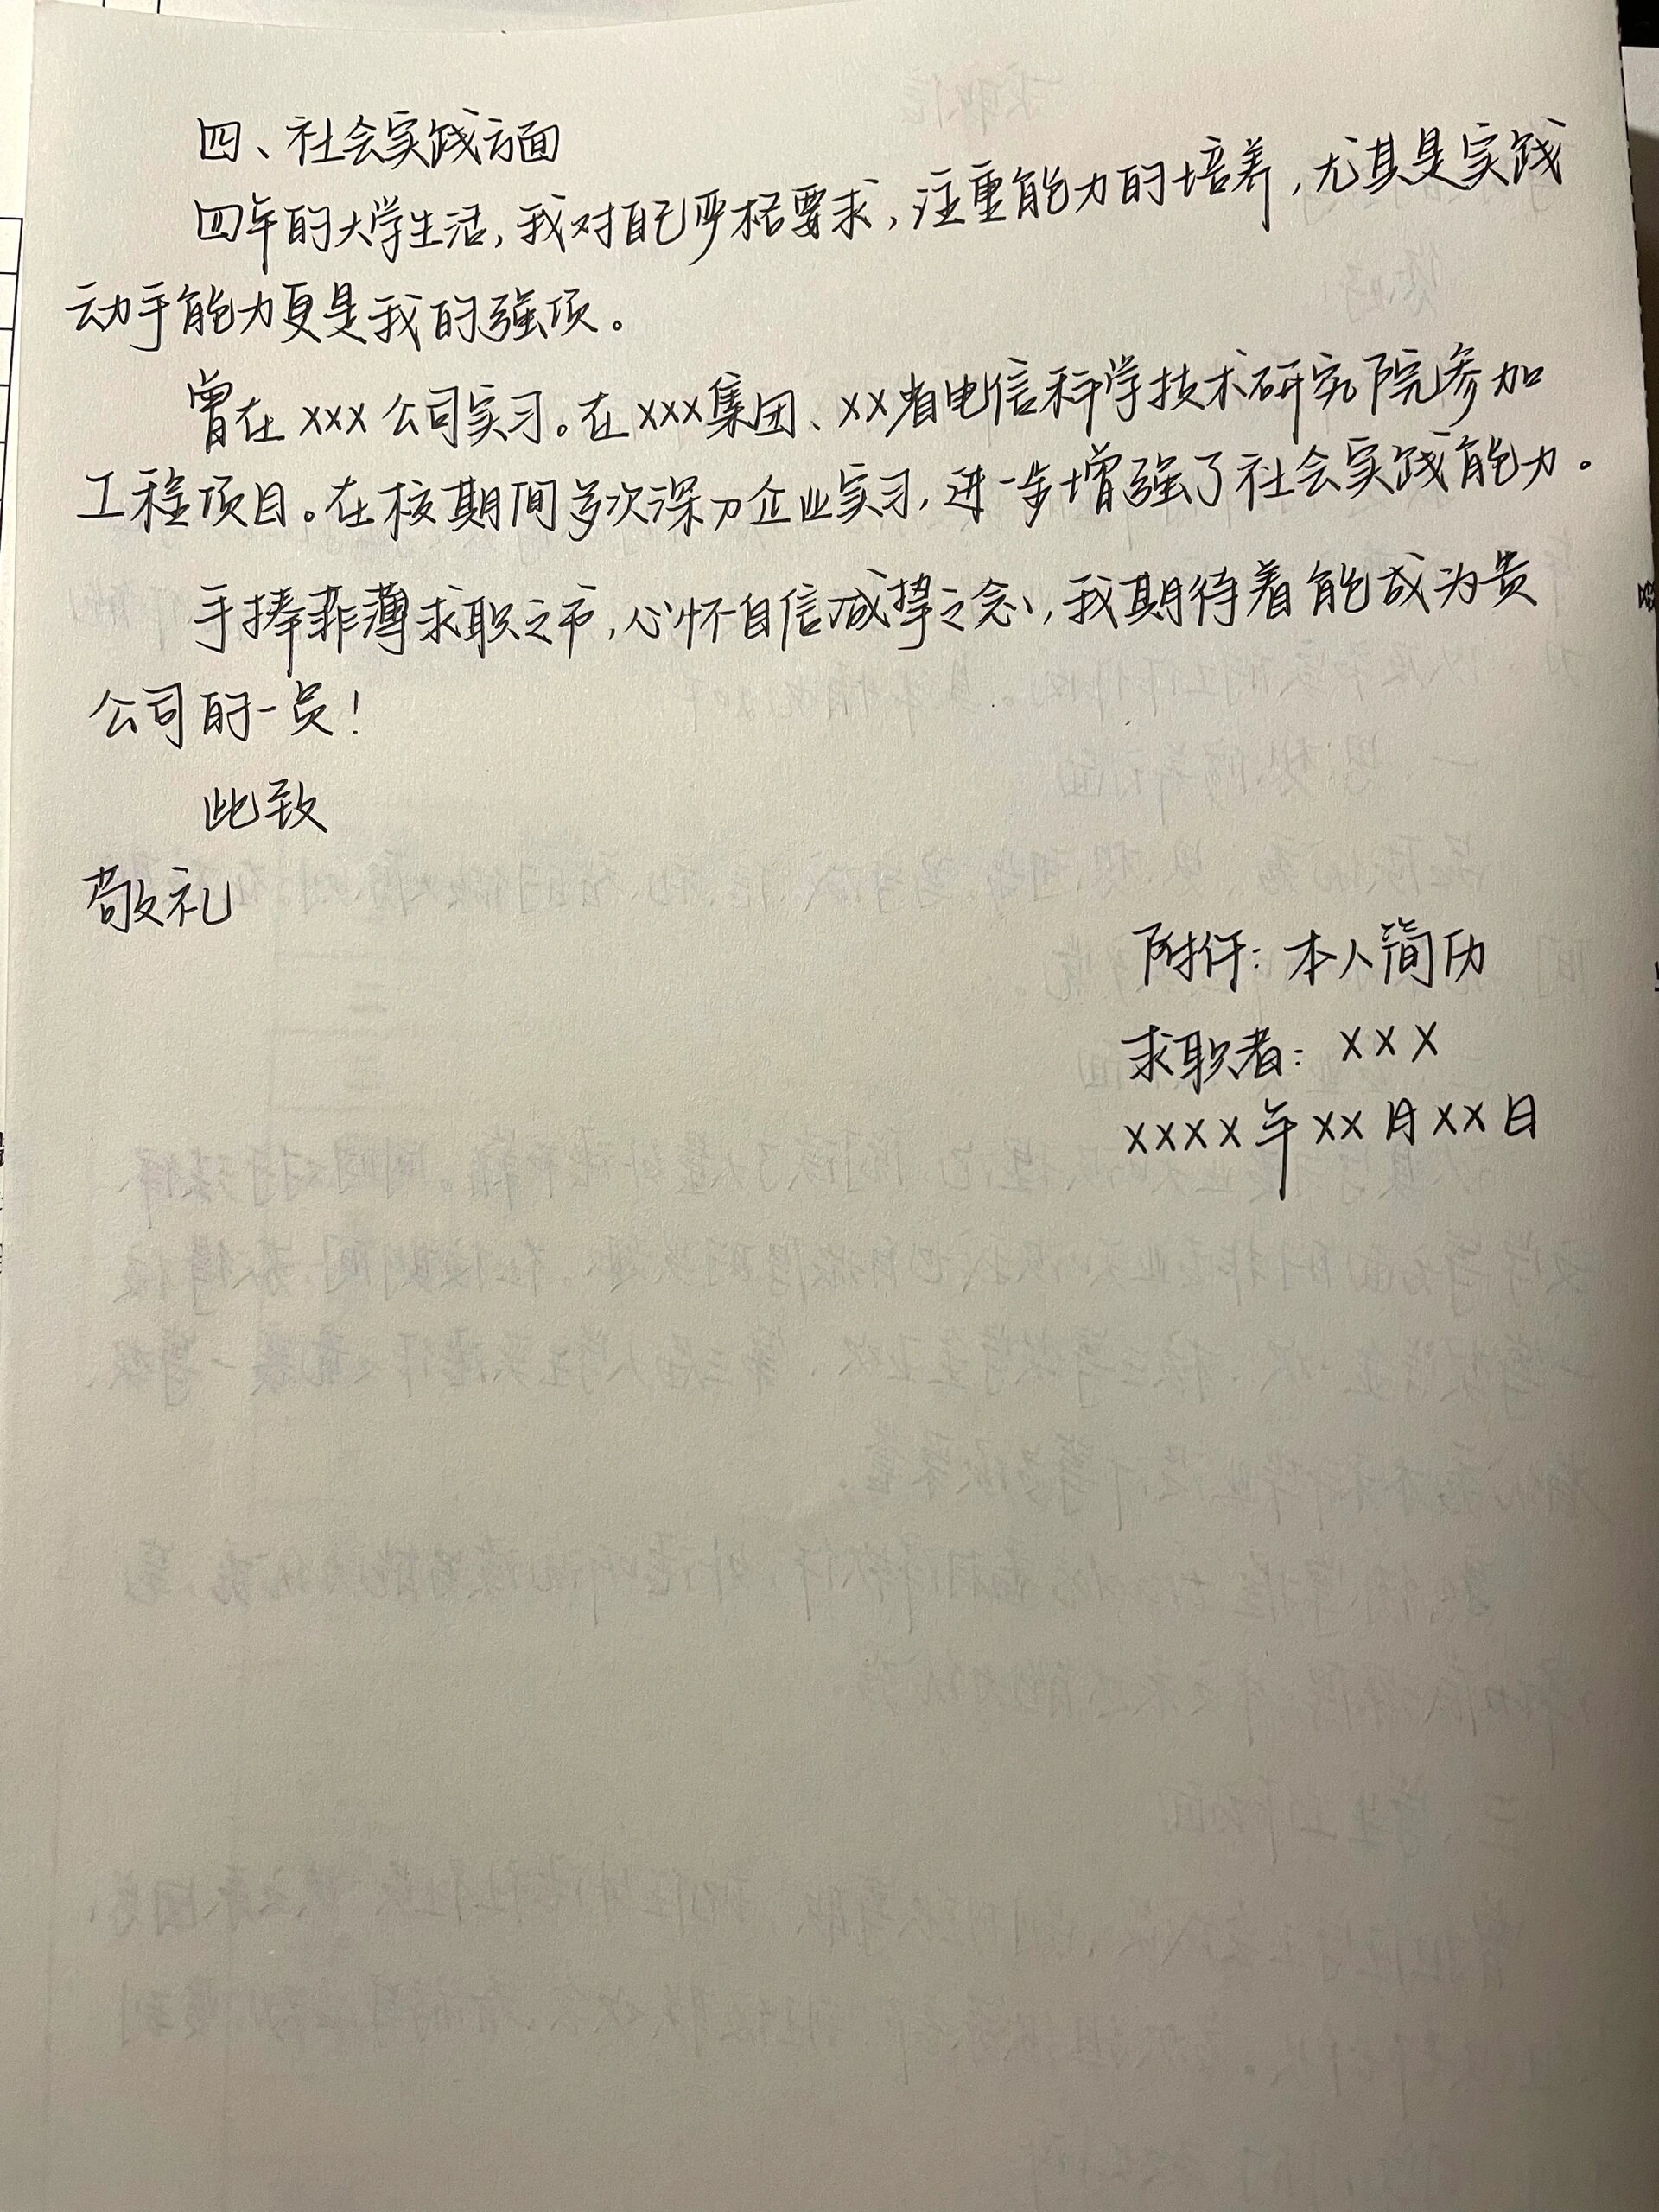 四、社会实践方面
四年的大学生活,我对自己严格要求,注重能力的培养,尤其是实践
动手能力更是我的强项。
曾在xxx公司实习。在xxx集团、xx省电信科学技术研究院参加
工程项目。在校期间多次深刀企业实习,进一步增强了社会实践能力。
手捧菲薄求职之书,心怀自信诚挚之念,我期待着能成为贵
公司的一员!
此致
敬礼
附件:本人简历
求职者:xxx
xxxx年xx月xx日